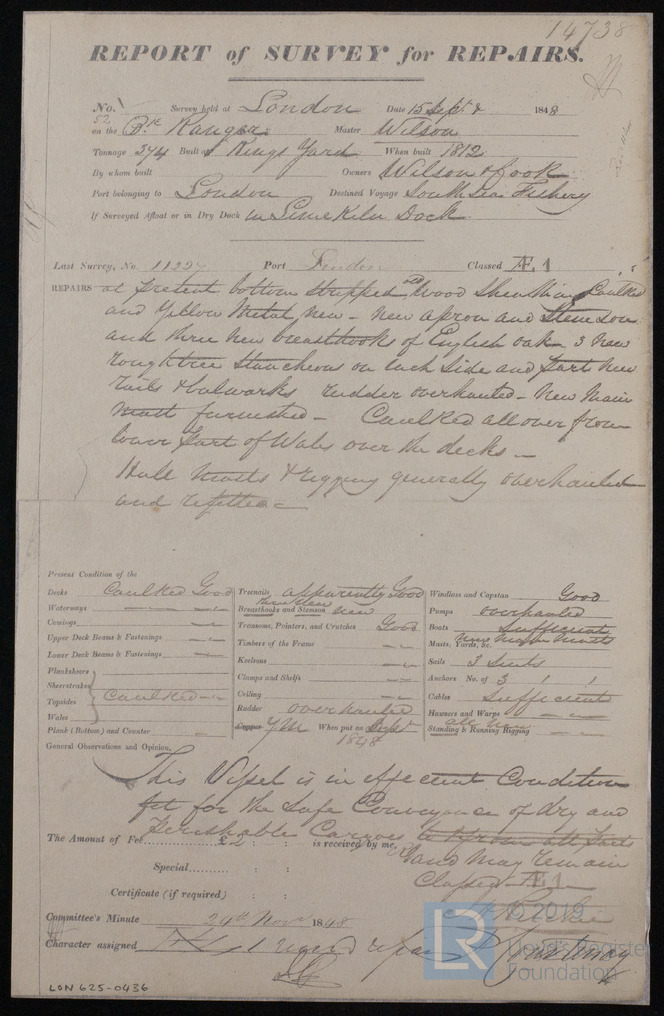 14738
REPORT of SURVEY for REPAIRS.
No. 52 Survey held at London Date 15 Sept 1848
on the Bk Ranger Master Wilson
Tonnage 374 Built at Kings Yard When built 1812
By whom built Owners Wilson & Cook
Port belonging to London Destined Voyage South Sea Fishery
If Surveyed Afloat or in Dry Dock in Lime Kiln Dock
Last Survey, No. 11227 Port London Classed Æ 1
REPAIRS at present bottom stripped old Wood Sheathing Caulked
and Yellow Metal new - new apron and Stemson
and three new breasthooks of English oak 3 new
roughtree Stancheons on each Side and part new
rails & bulwarks rudder overhauled - New Main
Mast furnished - Caulked all over from
lower part of Wales over the decks -
Hull Masts & rigging generally overhauled
and refitted -
Present Condition of the
Decks Caulked Good
Waterways
Comings
Upper Deck Beams & Fastenings
Lower Deck Beams & Fastenings
Plankshears
Sheerstrakes
Topsides Caulked
Wales
Plank (Bottom) and Counter
Treenails apparently Good
Breasthooks and Stemson Three New new
Transoms, Pointers, and Crutches Good
Timbers of the Frame
Keelsons
Clamps and Shelfs
Ceiling
Rudder overhauled
Copper YM When put on Sept 1848
Windlass and Capstan Good
Pumps overhauled
Boats Sufficient
Masts, Yards, &c. New Main Mast
Sails 3 Suits
Anchors No. of 3
Cables Sufficient
Hawsers and Warps
Standing & Running Rigging all New
General Observations and Opinion,
This Vessel is in effecient Condition
fit for the Safe Conveyance of dry and
Perishable Cargoes to & from all Parts
The Amount of Fee £2 : : is received by me,
and may remain
Classed Æ 1
Special : :
Certificate (if required) : :
Committee's Minute 24th Novr 1848
Character assigned
Courtenay
LON 625-0436
LR
© 2019
Lloyd's Register
Foundation